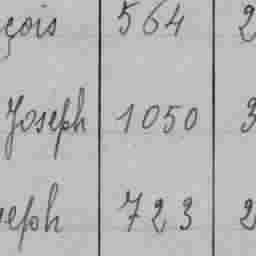 çois 564 2
Joseph 1050 3
seph 723 2